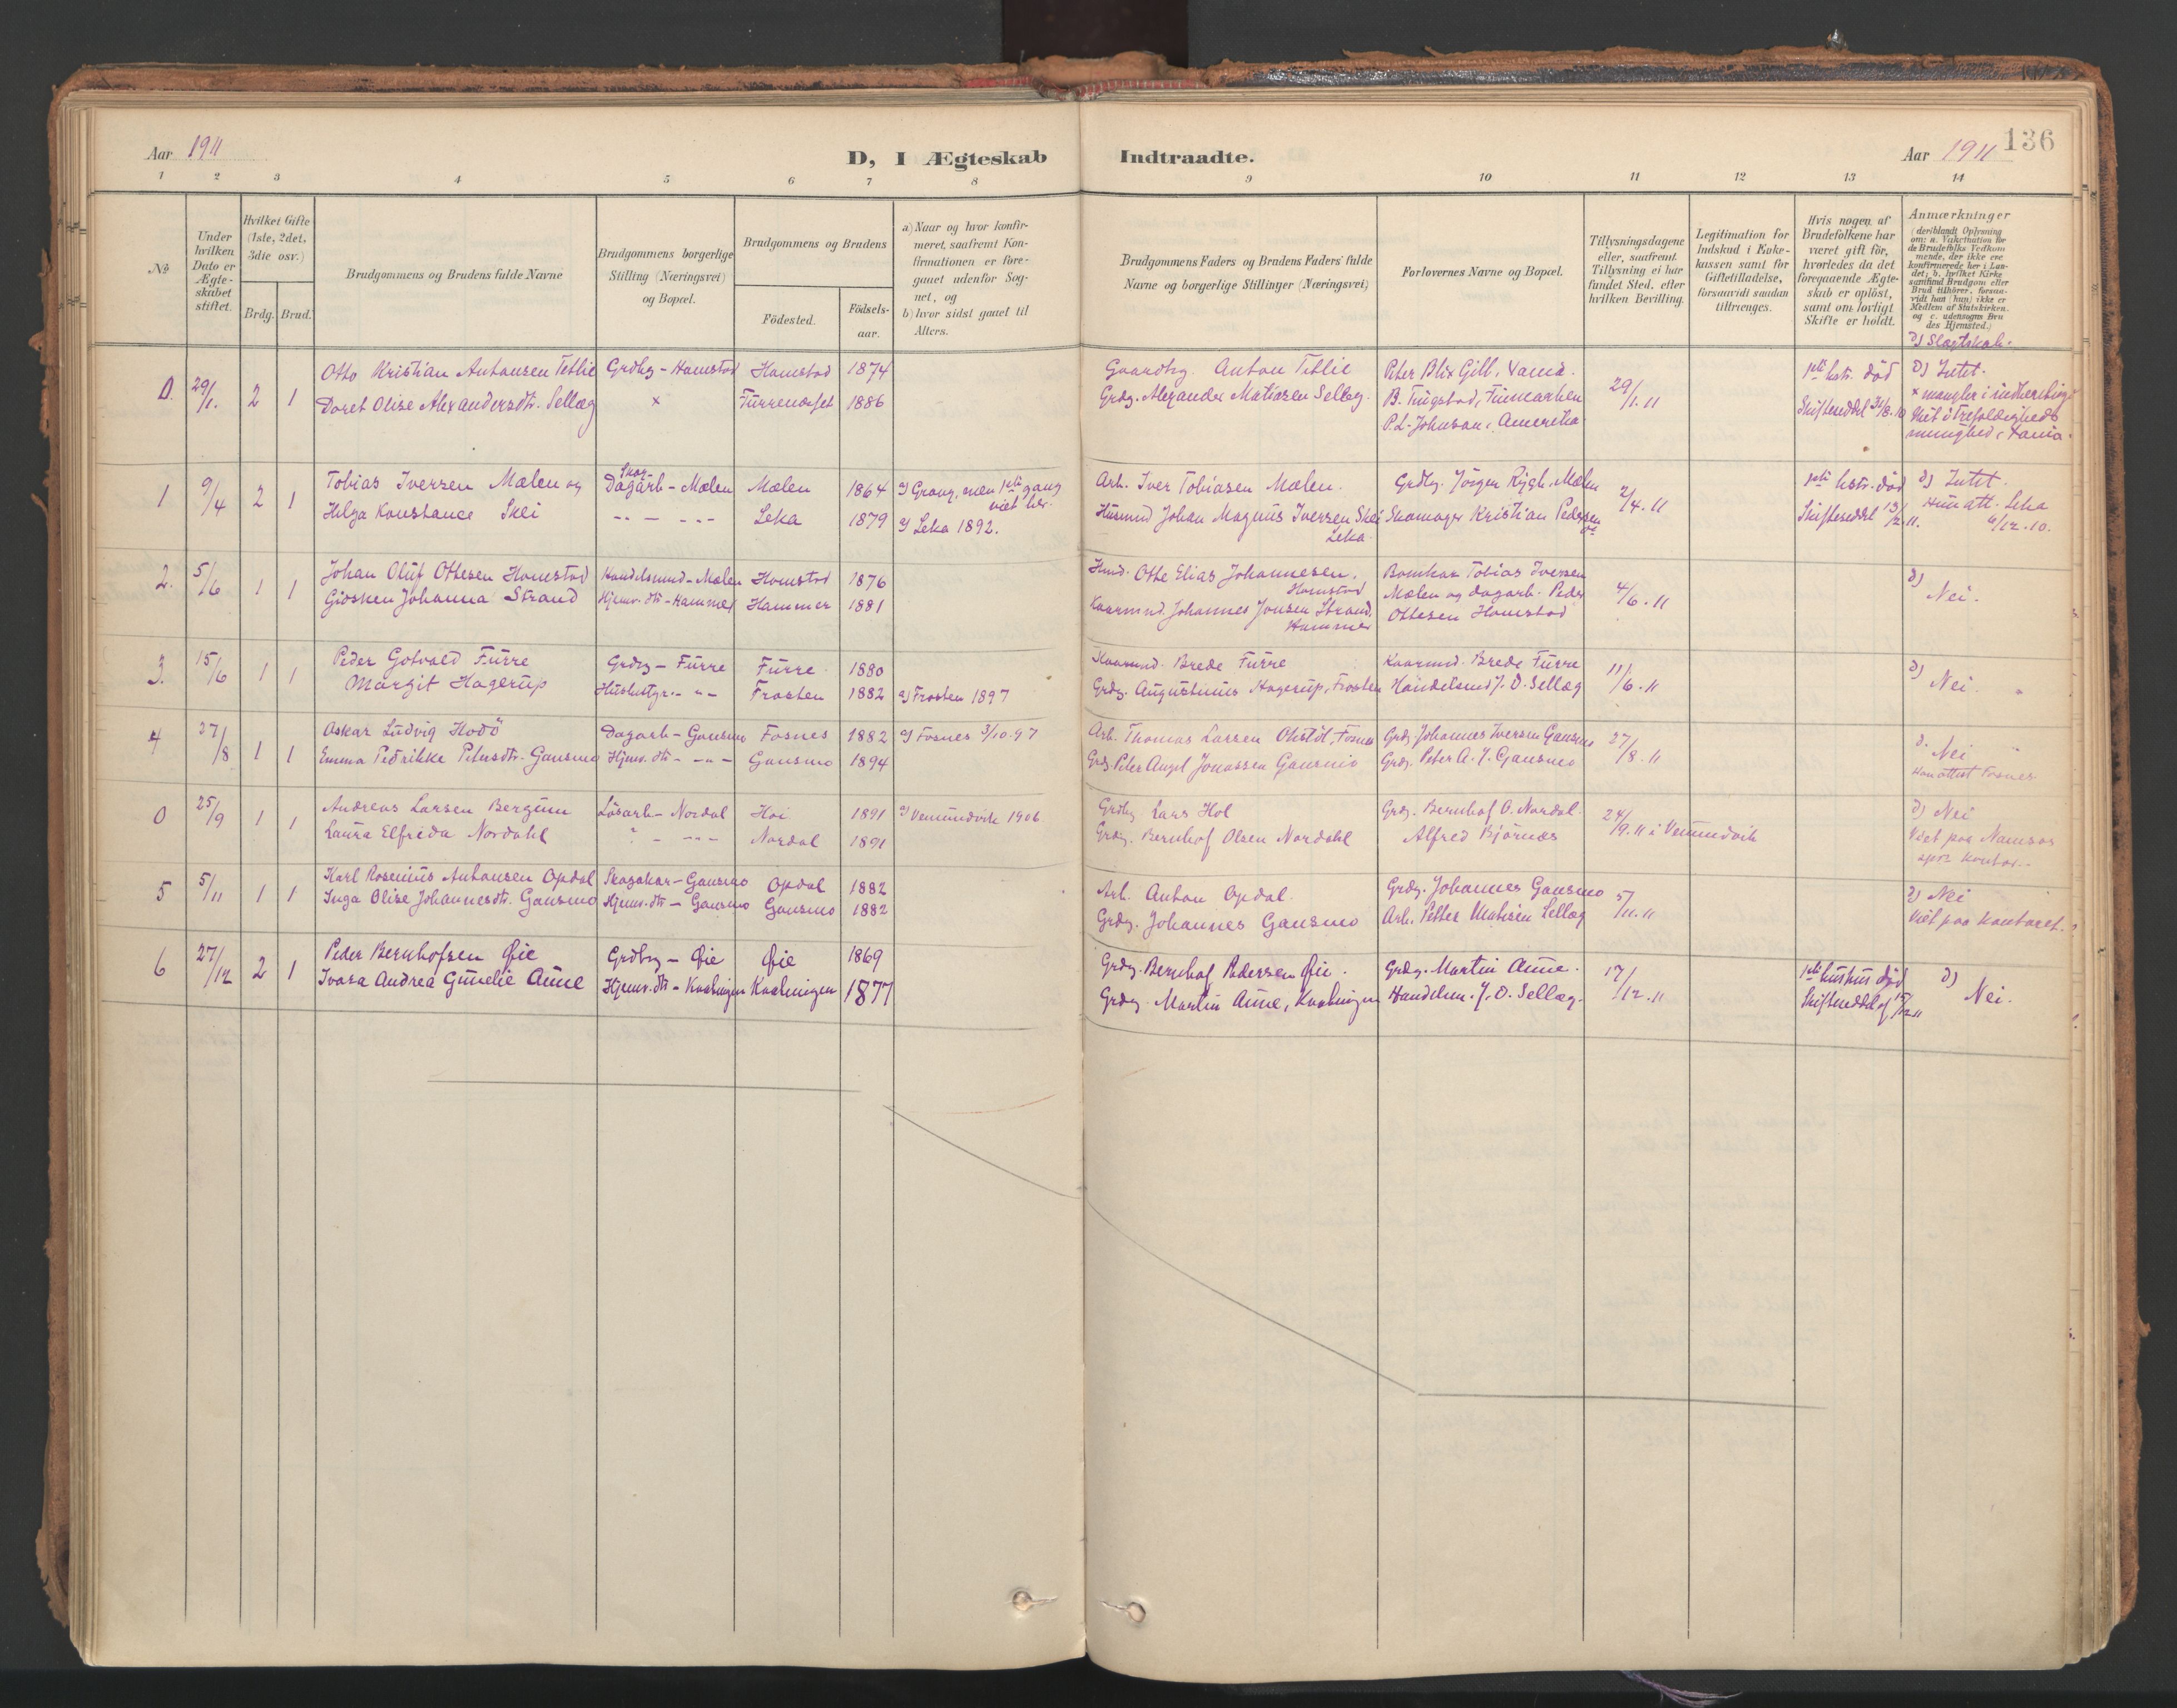 Aar 1911
D, I Ægteskab Indtraadte.
Aar 1911
136
1 2 3 4 5 6 7 8 9 10 11 12 13 14
№
Under hvilken Dato er Ægteskabet stiftet.
Hvilket Gifte (1ste, 2det, 3die osv.)
Brdg. Brud.
Brudgommens og Brudens fulde Navne
Brudgommens borgerlige Stilling (Næringsvei) og Bopæl.
Brudgommens og Brudens
Fødested.
Fødselsaar.
a) Naar og hvor konfirmeret, saafremt Konfirmationen er foregaaet udenfor Sognet, og
b) hvor sidst gaaet til Alters.
Brudgommens Faders og Brudens Faders fulde Navne og borgerlige Stillinger (Næringsvei)
Forlovernes Navne og Bopæl.
Tillysningsdagene eller, saafremt Tillysning ei har fundet Sted, efter hvilken Bevilling.
Legitimation for Indskud i Enkekassen samt for Giftetilladelse, forsaavidt saadan tiltrænges.
Hvis nogen af Brudefolkene har været gift før, hvorledes da det foregaaende Ægteskab er opløst, samt om lovligt Skifte er holdt.
Anmærkninger (deriblandt Oplysning om: a. Vakcination for de Brudefolks Vedkommende, der ikke ere konfirmerede her i Landet; b. hvilket Kirkesamfund Brudgom eller Brud tilhører, forsaavidt han (hun) ikke er Medlem af Statskirken og c. udensogns Brudes Hjemsted.)
d) Slægtskab.
0. 29/1. 2 1 Otto Kristian Antonsen Tetlie Grdbr - Homstad Homstad 1874 Gaardbr. Anton Tetlie Peter Blix Gill, Vania. 29/1.11 1ste hstr. død d) Intet.
Doret Olise Alexandersdtr. Sellæg × Furrenesset 1886 Grdbr. Alexander Matiasen Sellæg. B. Tingstad, Finmarken Skifteseddel 31/8.10 × mangler i indberetning
P.L. Johnson, Amerika Viet i Trefoldigheds menighed, Vania.
1 9/4 2 1 Tobias Iversen Mælen og Skor Dagarb - Mælen Mælen 1864 a) Grong, men 1ste gang viet her. Arb. Iver Tobiasen Mælen. Grdbr. Jörgen Rygh. Mælen 2/4.11 1ste hstr. død d) Intet.
Helga Konstance Skei Leka 1879 a) Leka 1892. Husmnd Johan Magnus Iversen Skei Leka Skomager Kristian Pedersen Skifteseddel 13/2.11. Hun att. Leka 6/12.10.
2. 5/6 1 1 Johan Oluf Ottesen Homstad Handelsmnd - Mælen Homstad 1876 Hmd. Otte Elias Johannesen, Homstad Bomkar Tobias Iversen 4/6.11 d) Nei.
Gjósken Johanna Strand Hjemv. dtr - Hammer Hammer 1881 Kaarmnd. Johannes Jonsen Strand, Hammer Mælen og dagarb. Peder Ottesen Homstad
3. 15/6 1 1 Peder Gotvald Furre Grdbr - Furre Furre 1880 Kaarmd. Brede Furre Kaarmd. Brede Furre 11/6.11 d) Nei.
Margit Hagerup Huslestyr. - "- Frosten 1882 a) Frosten 1897 Grdbr. Augustinus Hagerup, Frosten Handelsmd J. O. Sellæg
4 27/8 1 1 Oskar Ludvig Hodö Dagarb - Gansmo Fosnes 1882 a) Fosnes 3/10.97 Arb. Thomas Larsen Fosnes Grdbr. Johannes Iversen Gansmo 27/8.11 d. Nei
Emma Pedrikke Petersdtr. Gansmo Hjemv. dtr - "- Gansmo 1894 Grdbr. Peter Angel Jonassen Gansmo Grdbr. Peter A. J. Gansmo Han attest Fosnes
0 25/9 1 1 Andreas Larsen Bergum Lösarb - Nordal Hoi 1891 a) Vemundvik 1906 Grdbr Lars Hol Grdbr. Bernhof O. Nordal. 24/9.11 i Vemundvik d) Nei
Laura Elfrida Nordahl Nordal 1891 Grdbr. Bernhof Olsen Nordahl Alfred Björnes Viet paa Namsos kontor.
5 5/11 1 1 Karl Rosenius Antonsen Opdal Skogskar - Gansmo Opdal 1882 Arb. Anton Opdal. Grdbr. Johannes Gansmo 5/11.11 d) Nei
Inga Olise Johannesdtr. Gansmo Hjemv. dtr - Gansmo Gansmo 1882 Grdbr. Johannes Gansmo Arb. Petter Matisen Sellæg Viet paa Kontoret.
6 27/12 2 1 Peder Bernhofsen Øie Grdbr - Øie Øie 1869 Grdbr. Bernhof Pedersen Øie. Grdbr. Martin Aune. 17/12.11 1ste hustru død d) Nei.
Ivara Andrea Gunelie Aune Hjemv. dtr - Kvalningen Kvalningen 1877 Grdbr. Martin Aune, Kvalningen Handelsm. J. O. Sellæg. Skifteseddel af 15/12.11